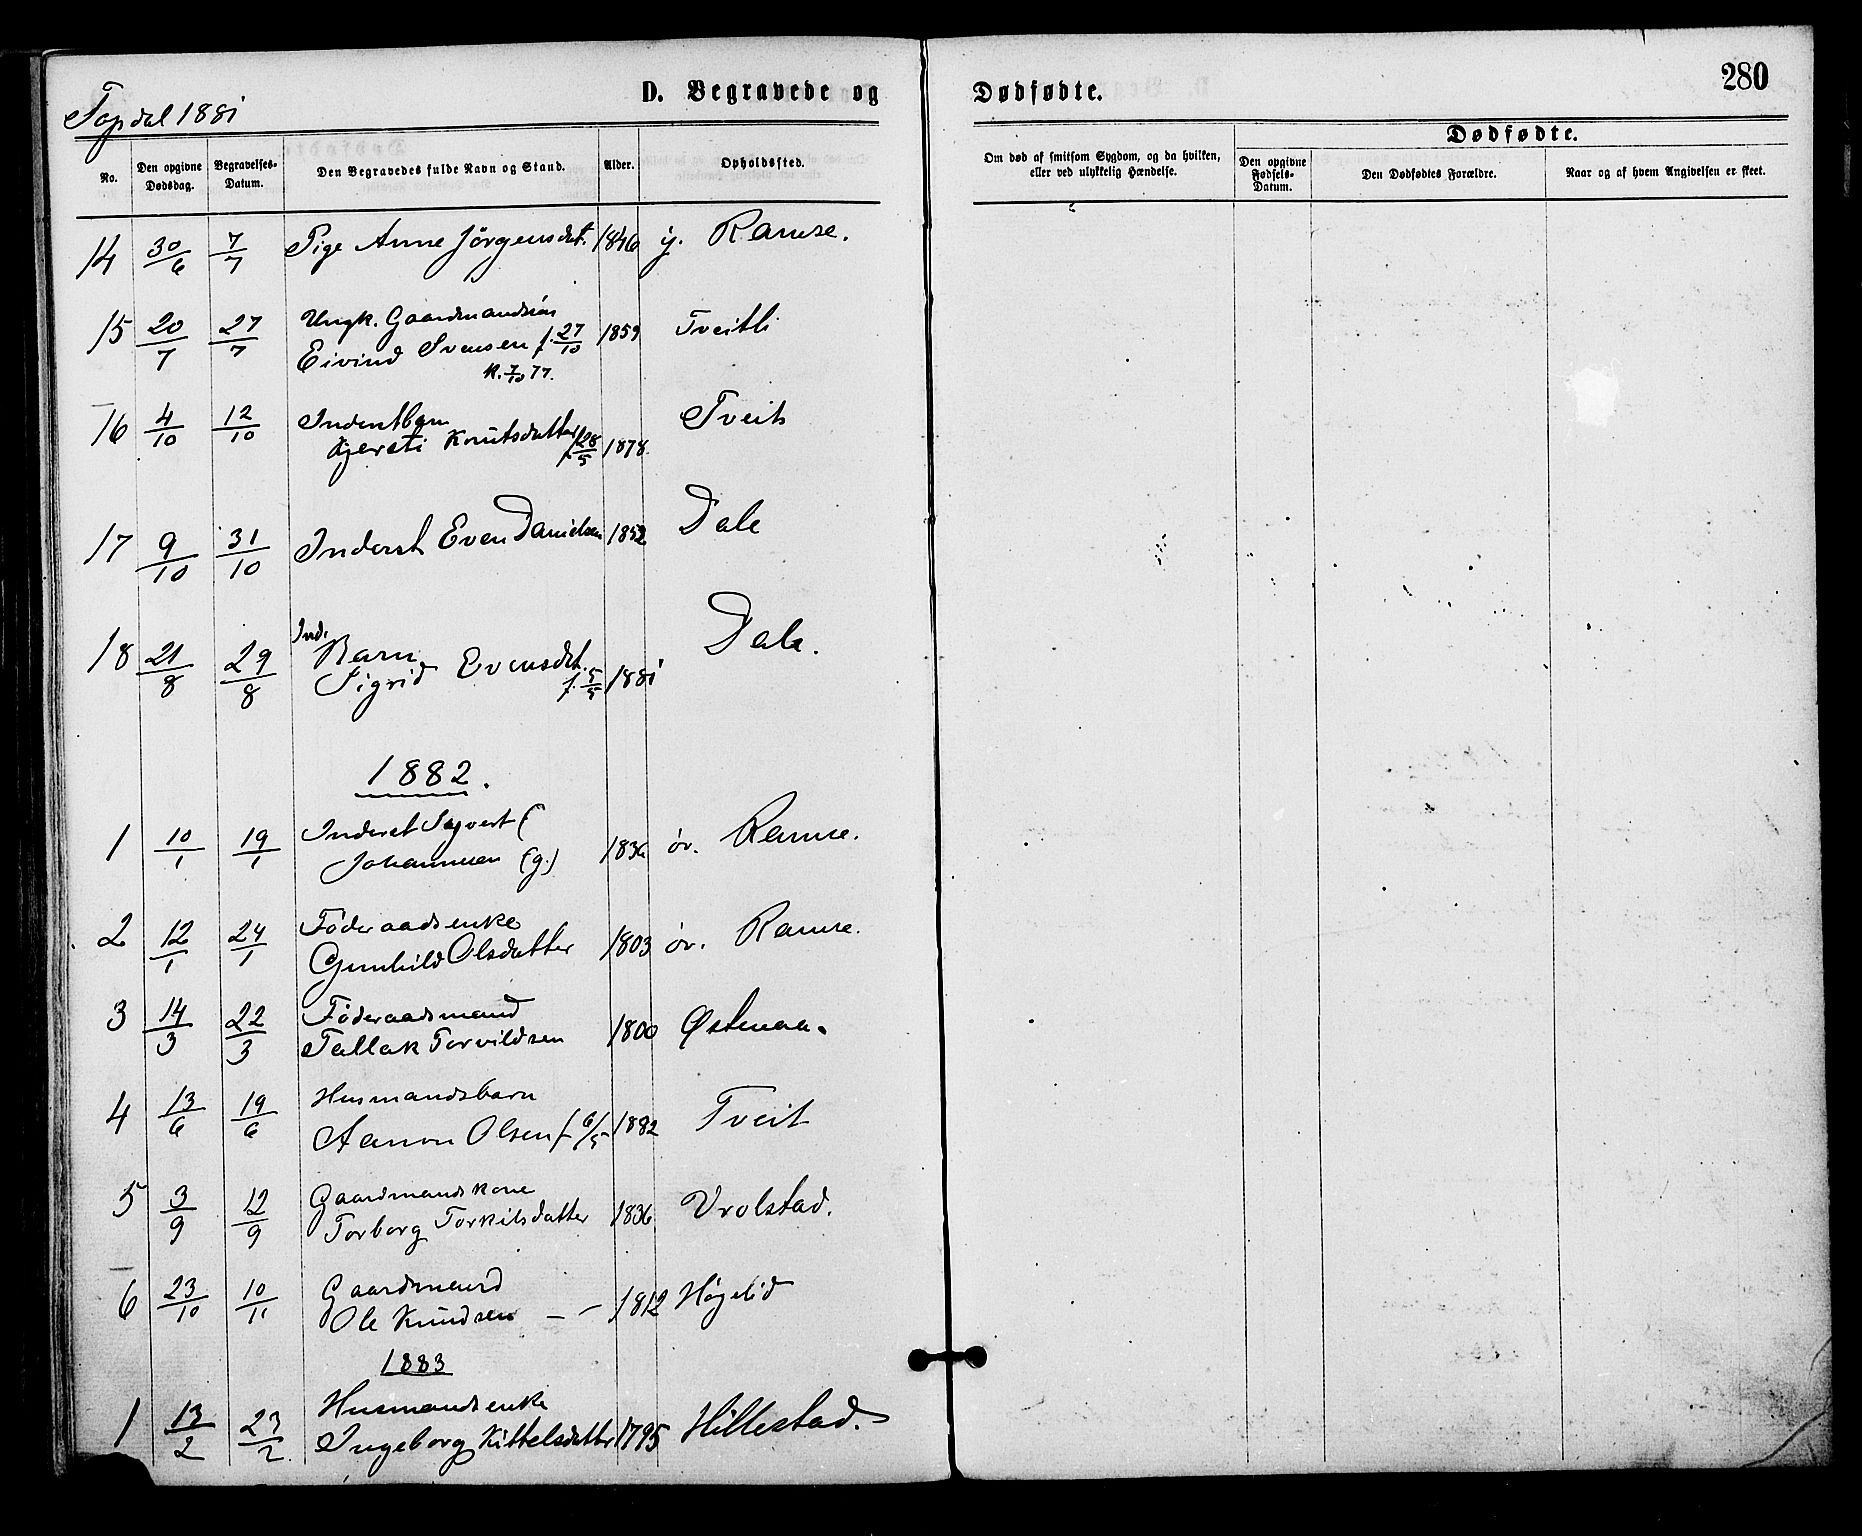 280
D. Begravede og Dødfødte.
Topdal 1881
No.
Den opgivne Dødsdag.
Begravelses-Datum.
Den Begravedes fulde Navn og Stand.
Alder.
Opholdssted.
Om død af smitsom Sygdom, og da hvilken,
eller ved ulykkelig Hændelse.
Dødfødte.
Den opgivne Fødsels-Datum.
Den Dødfødtes Forældre.
Naar og af hvem Angivelsen er skeet.
14 30/6 7/7 Pige Anne Jörgensdat. 1846 y. Ramse.
15 20/7 27/7 Ungk. Gaardmandssön
Eivind Svensen f. 27/10 1859 Tveitli
K. 7/10 77.
16 4/10 12/10 Inderstbarn Tveit
Kjersti Knutsdatter f. 28/5 1878.
17 9/10 31/10 Inderst Even Danielsen 1852 Dale
18 21/8 29/8 Ind.
Barn Dale.
Sigrid Evensdat. f. 5/5 1881
1882.
1 10/1 19/1 Inderst Syvert
Johannesen (g.) 1836 øv. Ramse.
2 12/1 24/1 Föderaadsenke
Gunhild Olsdatter 1803 øv. Ramse.
3 14/3 22/3 Föderaadsmand
Tallak Torvildsen 1800 Østenaa.
4 13/6 19/6 Husmandsbarn
Aanon Olsen f 6/5 1882 Tveit
5 3/9 12/9 Gaardmandskone
Torborg Torkilsdatter 1836 Vrolstad.
6 23/10 10/11 Gaardmand
Ole Knudsen — – 1812 Högelid
1883
1 13/2 23/2. Husmandsenke
Ingeborg Kittelsdatter 1795 Hillestad.